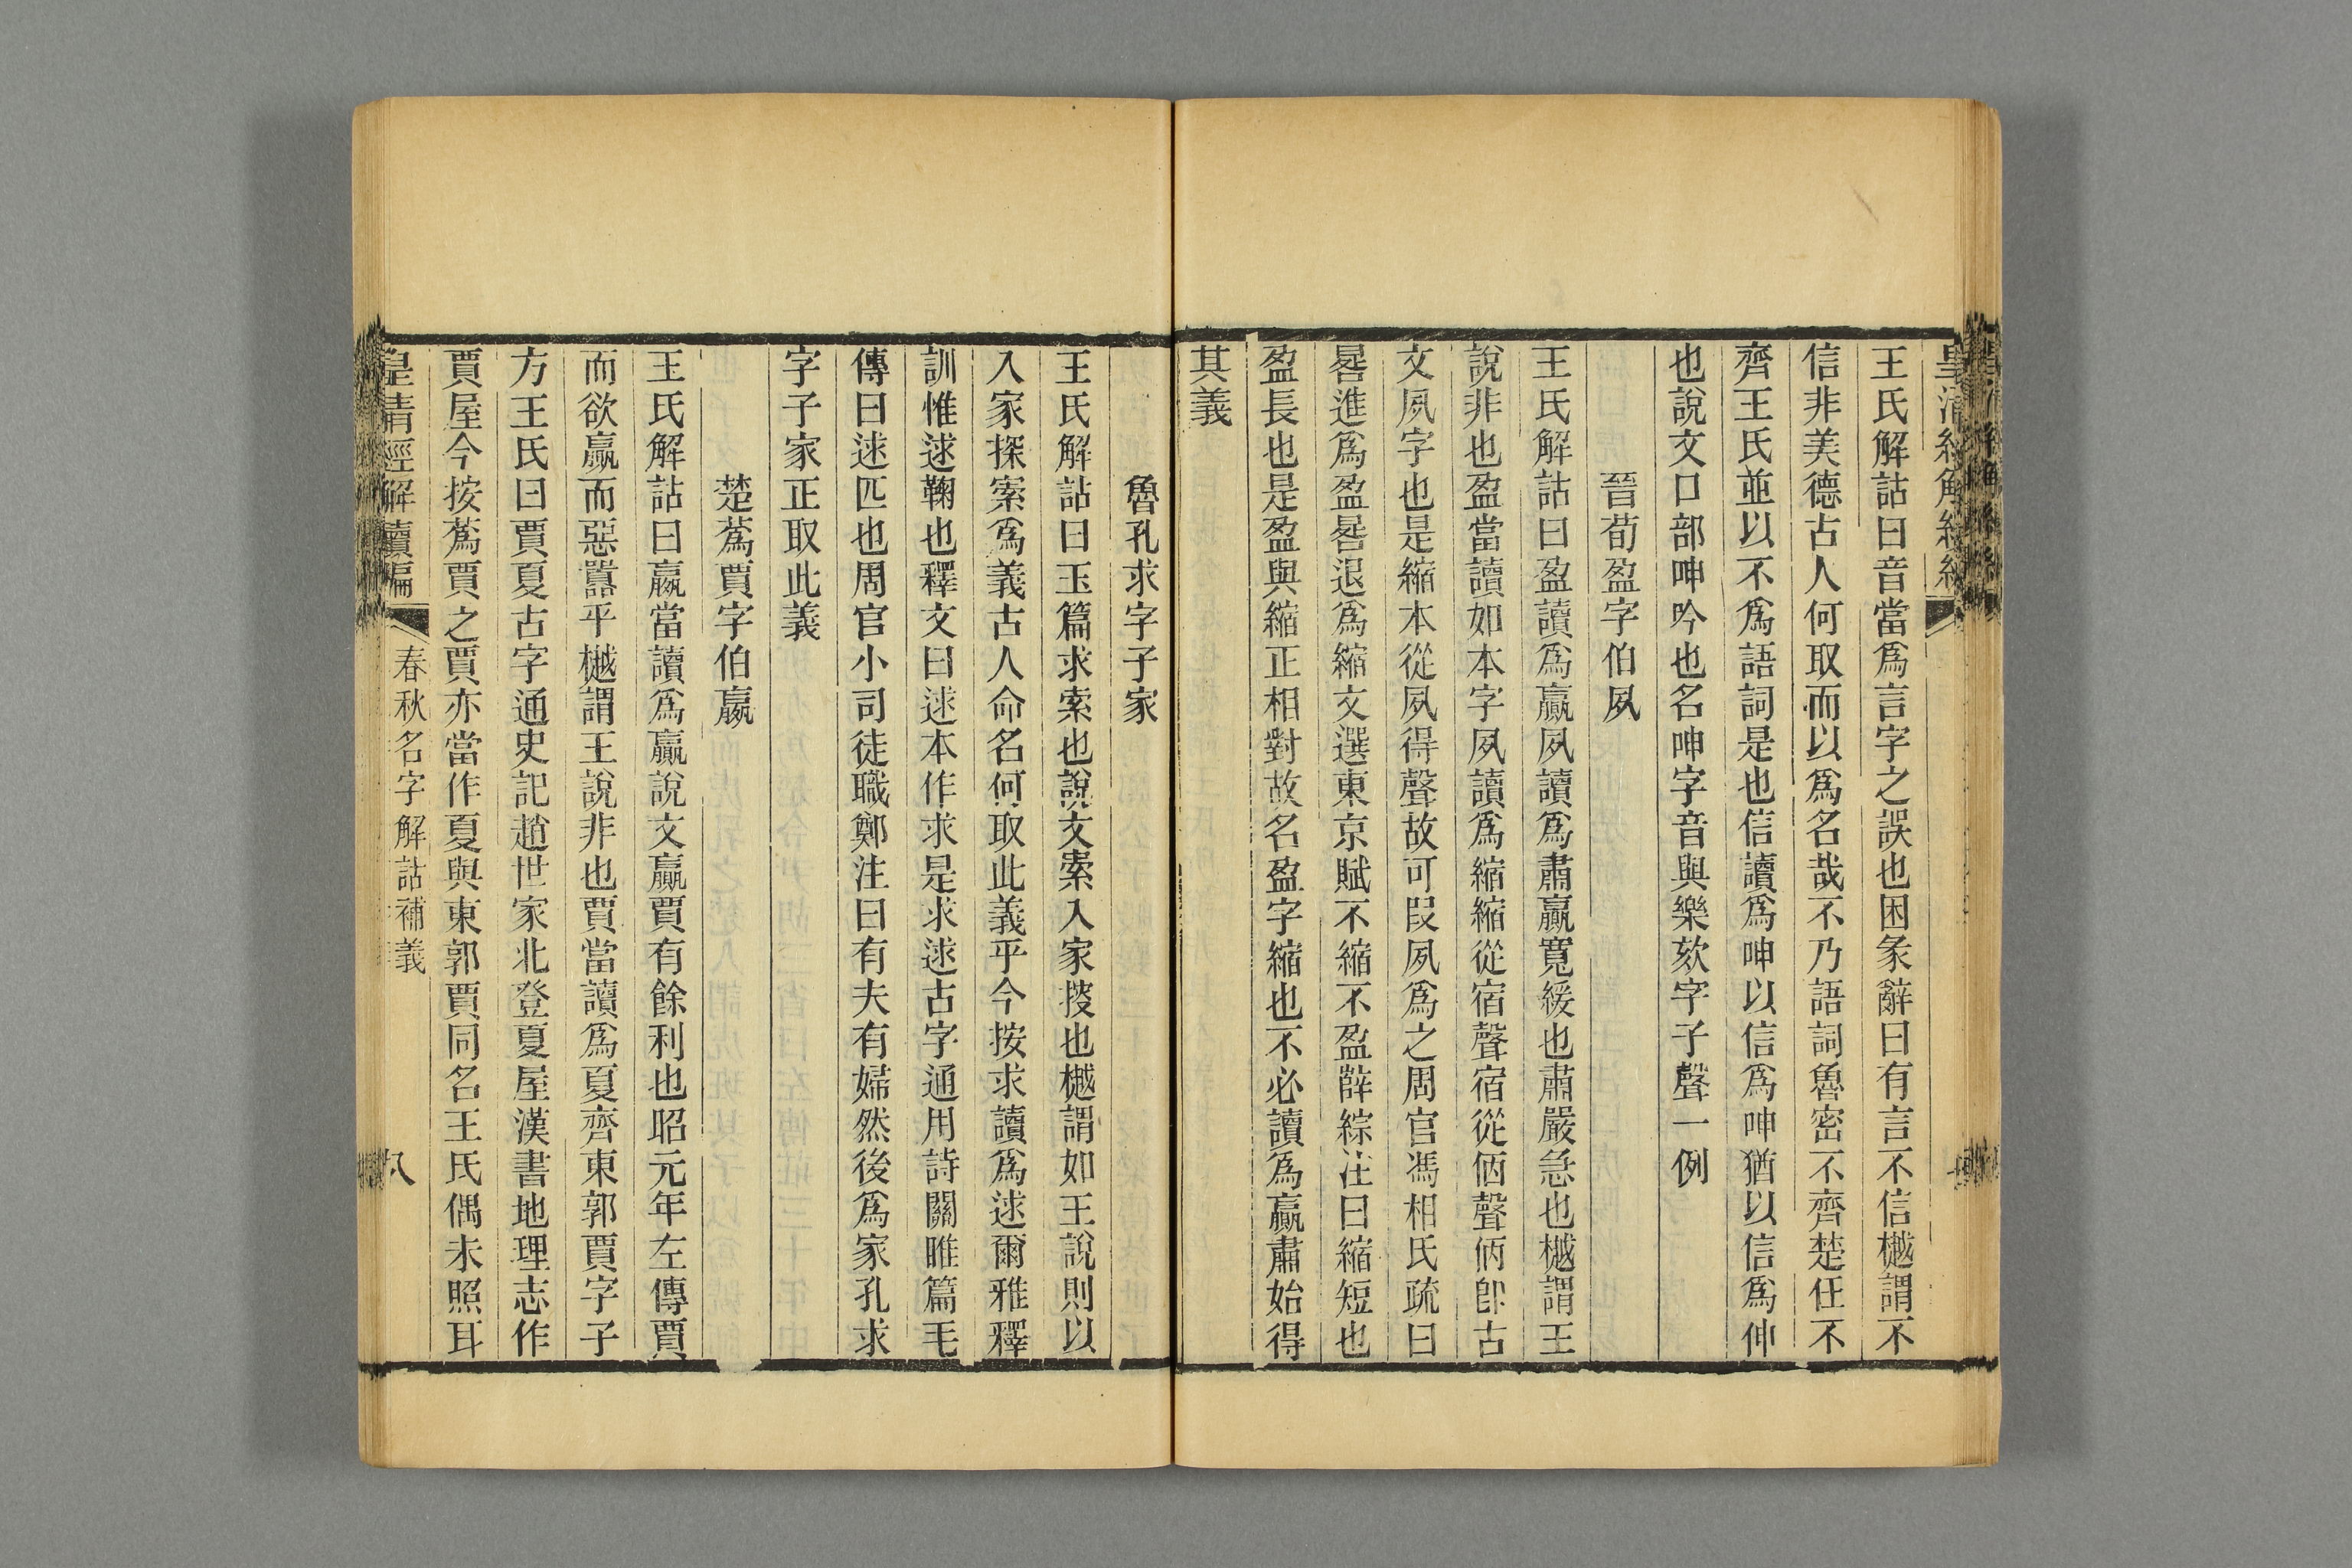 王氏解詁曰音當爲言字之誤也困彖辭曰有言不信樾謂不
信非美德古人何取而以爲名哉不乃語詞魯密不齊楚任不
齊王氏並以不爲語詞是也信讀爲呻以信爲呻猶以信爲伸
也說文口部呻吟也名呻字音與樂欬字子聲一例
晉荀盈字伯夙
王氏解詁曰盈讀爲贏夙讀爲肅贏寬緩也肅嚴急也樾謂王
說非也盈當讀如本字夙讀爲縮縮從宿聲宿從㐁聲㐁卽古
文夙字也是縮本從夙得聲故可叚夙爲之周官馮相氏疏曰
晷進爲盈晷退爲縮文選東京賦不縮不盈薛綜注曰縮短也
盈長也是盈與縮正相對故名盈字縮也不必讀爲贏肅始得
其義
魯孔求字子家
王氏解詁曰玉篇求索也說文㩠入家搜也樾謂如王說則以
入家探索爲義古人命名何取此義乎今按求讀爲逑爾雅釋
訓惟逑鞠也釋文曰逑本作求是求逑古字通用詩關雎篇毛
傳曰逑匹也周官小司徒職鄭注曰有夫有婦然後爲家孔求
字子家正取此義
楚蒍賈字伯嬴
王氏解詁曰嬴當讀爲贏說文贏賈有餘利也昭元年左傳賈
而欲贏而惡囂乎樾謂王說非也賈當讀爲夏齊東郭賈字子
方王氏曰賈夏古字通史記趙世家北登夏屋漢書地理志作
賈屋今按蒍賈之賈亦當作夏與東郭賈同名王氏偶未照耳
皇清經解續編
春秋名字解詁補義
八